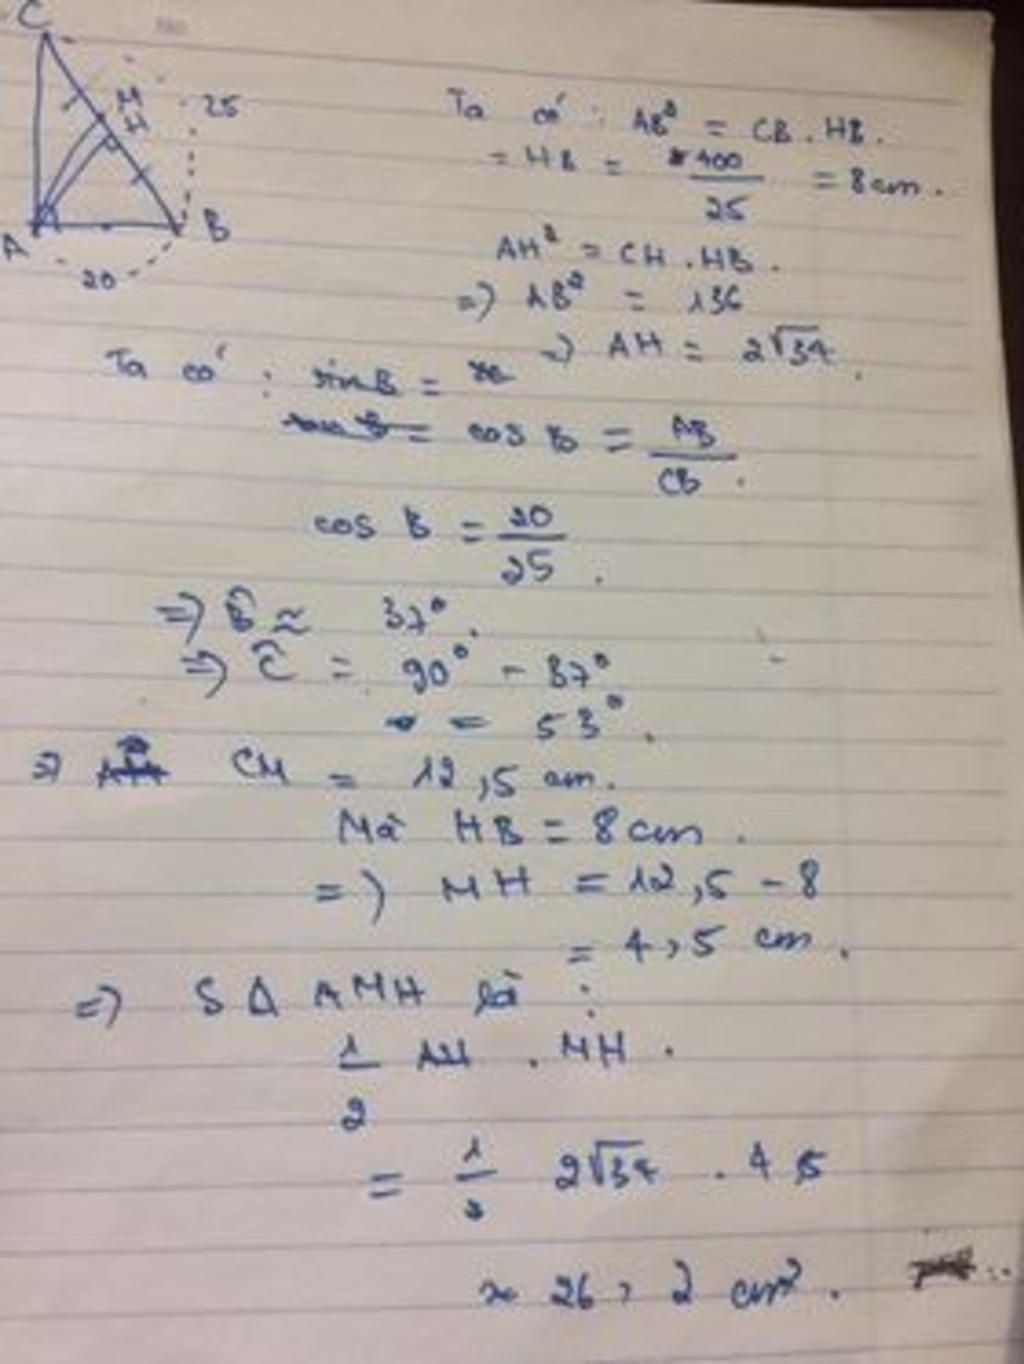 C
M
H
25
A
B
20
Ta có : AB² = CB . HB .
= HB = 400/25 = 8 cm .
AH² = CH . HB .
=) AB² = 136
=) AH = 2√34 .
Ta có : sin B =
cos B = AB/CB .
cos B = 20/25 .
=> B̂ ≈ 37° .
=> Ĉ = 90° - 37°
= 53° .
=> CM = 12,5 cm .
Mà HB = 8 cm .
=) MH = 12,5 - 8
= 4,5 cm .
=) S Δ AMH là :
1/2 AH . MH .
= 1/2 2√34 . 4,5
≈ 26,2 cm² .